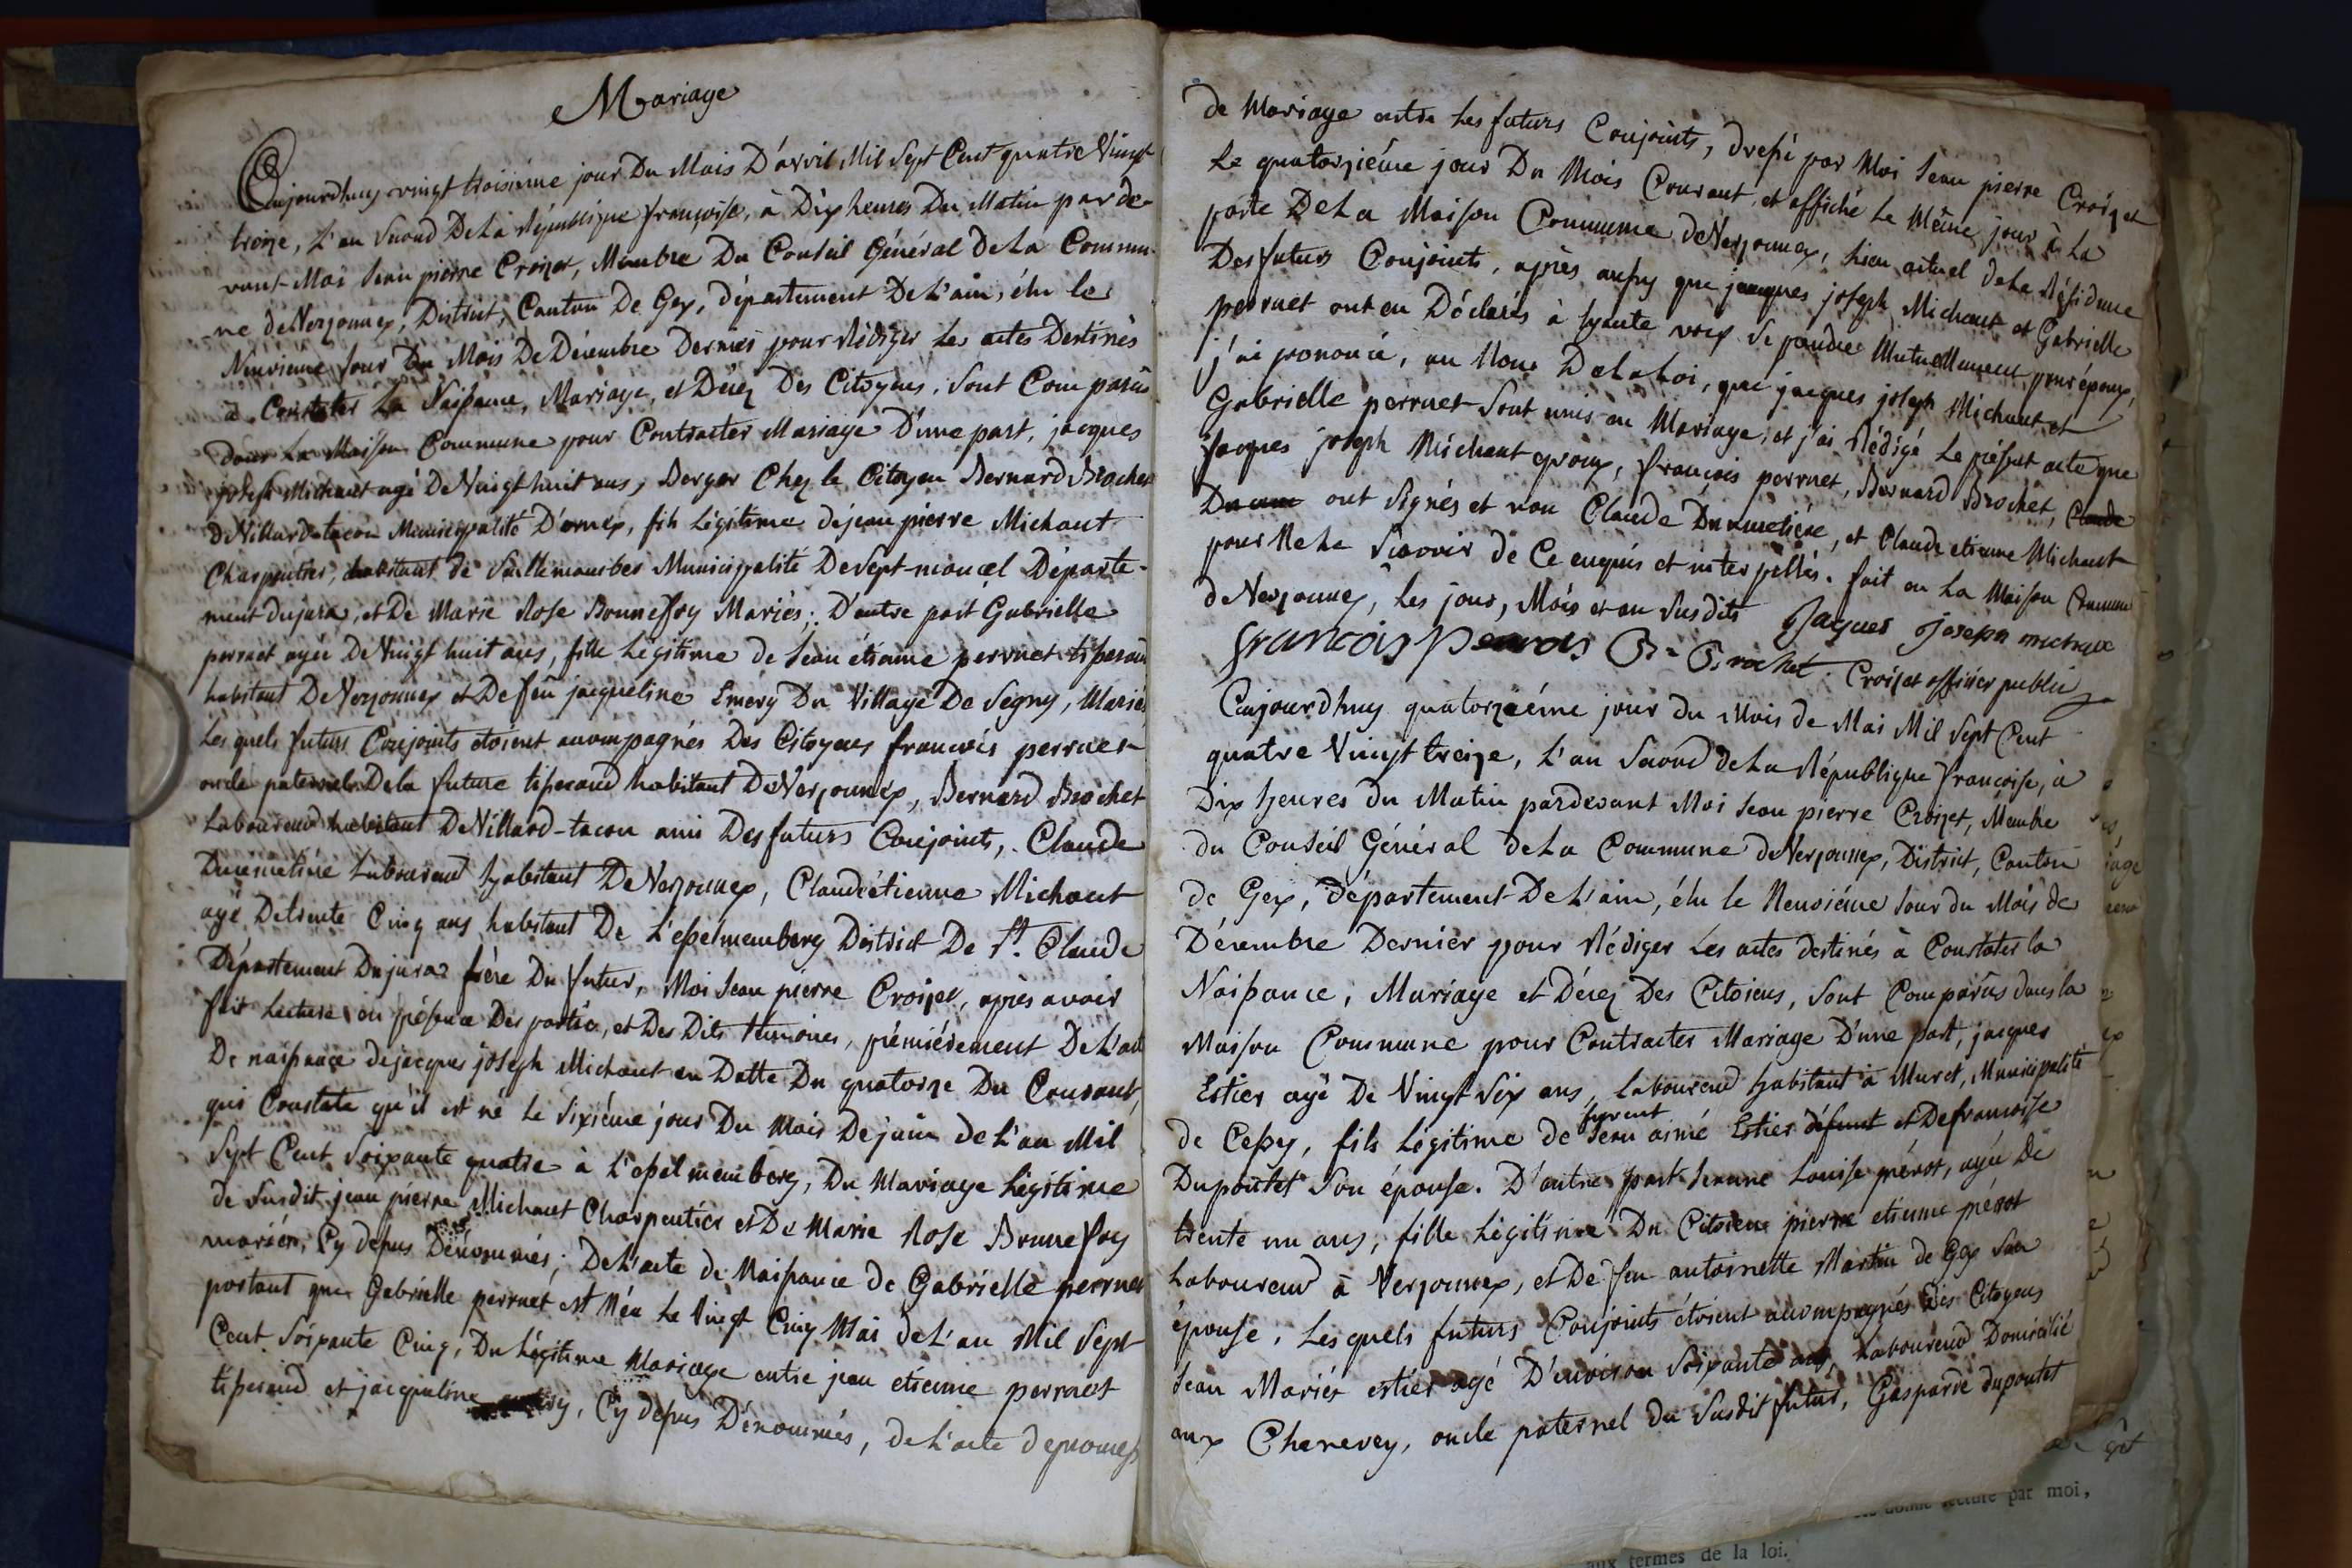 Mariage
Aujourdhuy vingt troisieme jour Du Mois D'avril Mil Sept Cent quatre Vingt
treize, L'an Second De La République françoise, à Dix heures Du Matin par de-
vant Moi Jean pierre Croizet, Membre Du Conseil Général de La Commu-
ne de Verzonnex, District, Canton De Gex, département De L'ain, élu le
Neuvieme Jour Du Mois De Décembre Dernier pour Rédiger Les actes Destinés
à Constater La Naissance, Mariage, et Décez Des Citoyens, Sont Comparus
dans La Maison Commune pour Contracter Mariage D'une part, jacques
joseph Michaut agé De Vingt huit ans, Berger Chez le Citoyen Bernard Brochet
de Villard-tacon Municipalité D'ornex, fils Légitime de jean pierre Michaut
Charpentier, habitant de Municipalité De Sept-moncel Départe-
ment du jura, et De Marie Rose Bonnefoy Mariés; D'autre part Gabrielle
perruet agée De Vingt huit ans, fille Légitime de Jean étienne perruet tisserand
habitant De Verzonnex et De feu jacqueline Emery Du Village De Segny, Mariés
Les quels futurs Conjoints étoient accompagnés Des Citoyens francois perruet
oncle paternel De la future tisserand habitant De Verzonnex, Bernard Brochet
Laboureur habitant De Villard-tacon ami Des futurs Conjoints, Claude
Ducimetière Laboureur habitant De Verzonnex, Claude étienne Michaut
agé De trente Cinq ans habitant De L'esselmemberg District De St. Claude
Département Du jura frère Du futur, Moi Jean pierre Croizet, après avoir
fait Lecture en présence Des parties, et Des Dits témoins, prémiérement De L'acte
De naissance de jacques joseph Michaut en Datte Du quatorze Du Courant,
qui Constate qu'il est né Le Sixiéme jour Du Mois De juin de L'an Mil
Sept Cent Soixante quatre à L'esselmemberg, Du Mariage Légitime
de Susdit jean pierre Michaut Charpentier et De Marie Rose Bonnefoy
mariés, Cy dessus Dénommés; De L'acte de Naissance de Gabrielle perruet
portant que Gabrielle perruet est Née Le Vingt Cinq Mai de L'an Mil Sept
Cent Soixante Cinq, Du Légitime Mariage entre jean etienne perruet
tisserand et jacqueline, Cy dessus Dénommés, de L'acte de promesse
de Mariage entre Les futurs Conjoints, dressé par Moi Jean pierre Croizet
Le quatorziéme jour Du Mois Courant, et affiché Le Même jour à La
porte De La Maison Commune de Verzonnex, Lieu actuel de La Résidence
Des futurs Conjoints, après aussy que jacques joseph Michaut et Gabrielle
perruet ont eu Déclarés à haute voix Se prendre Mutuellement pour époux,
j'ai prononcé, au Nom De La Loi, que jacques joseph Michaut et
Gabrielle perruet Sont unis en Mariage, et j'ai Rédigé Le présent acte que
jacques joseph Michaut époux, francois perruet, Bernard Brochet, Claude
ont Signés et non Claude Ducimetière, et Claude etienne Michaut
pour Ne Le Sçavoir de Ce enquis et interpellés. fait en La Maison Commune
de Verzonnex, Les jour, Mois et an Susdits Jaques Joseph michaux
francois perras B. Brochet. Croizet officier public
Aujourdhuy quatorziéme jour du Mois de Mai Mil Sept Cent
quatre Vingt treize, L'an Second de La République francoise, à
Dix heures du Matin pardevant Moi Jean pierre Croizet, Membre
du Conseil Général de La Commune de Verzonnex, District, Canton
de Gex, Département De L'ain, élu le Neuviéme Jour du Mois de
Décembre Dernier pour Rédiger Les actes destinés à Constater la
Naissance, Mariage et Décez Des Citoiens, Sont Comparus dans la
Maison Commune pour Contracter Mariage D'une part, jacques
Estier agé De Vingt Six ans, laboureur habitant à Muret, Municipalité
de Cessy, fils Légitime de Jean aimé Estier défunt et De francoise
Dupontet Son épouse. D'autre part Jeanne Louise pérot, agée De
trente un ans, fille Légitime Du Citoien pierre etienne pérot
Laboureur à Verzonnex, et De feu antoinette Martin de Gex Son
épouse. Les quels futurs Conjoints étoient accompagnés Des Citoyens
Jean Mariés estier agé D'environ Soixante ans, Laboureur Domicilié
aux Chenevey, oncle paternel du Susdit futur, Gasparde dupontet
donné lecture par moi,
aux termes de la loi.